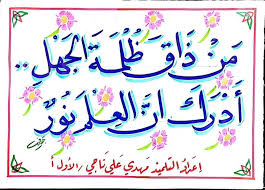 مَنْ ذَاقَ ظُلْمَةَ الجَهْلِ ..
أَدْرَكَ انَّ العِلْمَ نُورٌ
إعداد التلميذ مهدي علي ناجي / الأول أ